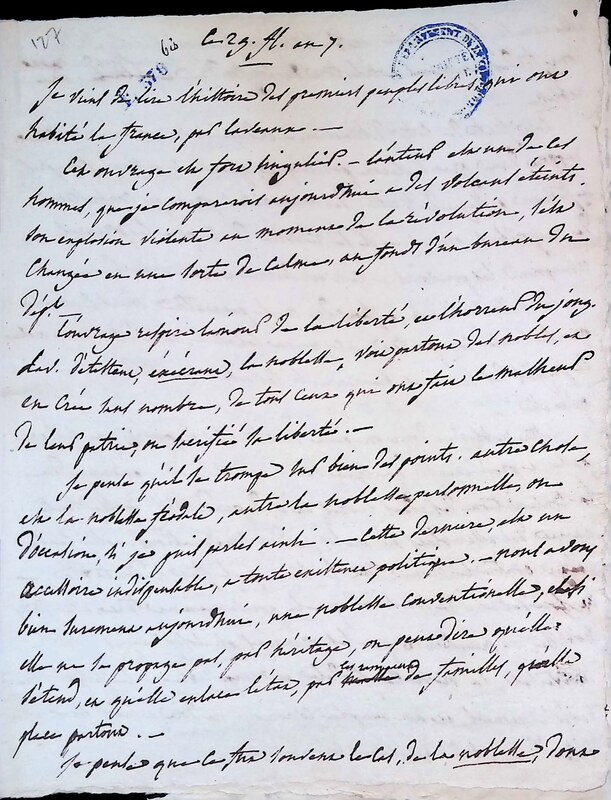 127
62
ce 29. fl. an 7.
579
DÉPARTEMENT DE
Je viens de lire l'histoire des premiers peuples libres qui ont
habité la france, par laveaux. —
Cet ouvrage est fort singulier. — l'auteur est un de ces
hommes, que je comparerois aujourdhui a des volcans éteints.
son explosion violente au moment de la révolution, s'est
changée en une sorte de calme, au fond d'un bureau du
dépt.
l'ouvrage respire l'amour de la liberté, et l'horreur du joug.
Lav. détestant, exécrant, la noblesse, voit partout des nobles, et
en crée sans nombre, de tous ceux qui ont fait le malheur
de leur patrie, ou sacrifié sa liberté. —
Je pense qu'il se trompe sur bien des points. autre chose,
est la noblesse féodale, autre la noblesse personnelle, ou
d'occasion, si je puis parler ainsi. — Cette derniere, est un
accessoire indispensable, a toute existence politique. — nous avons
bien surement aujourdhui, une noblesse conventionelle, et si
elle ne se propage pas, par héritage, on peut dire qu'elle
s'étend, et qu'elle enlace l'état, par les rameaux de familles, qu'elle
place partout. —
Je pense que ce fut souvent le cas, de la noblesse, dont